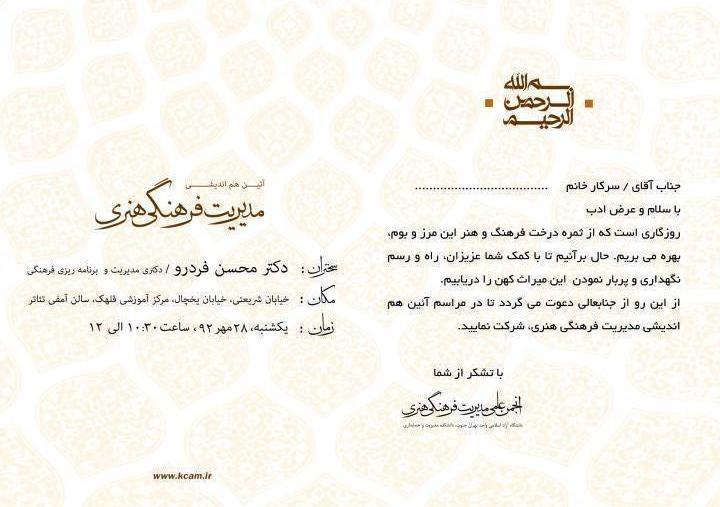 بسم الله
الرحمن
الرحیم
جناب آقای / سرکار خانم .....................................
با سلام و عرض ادب
روزگاری است که از ثمره درخت فرهنگ و هنر این مرز و بوم،
بهره می بریم. حال برآنیم تا با کمک شما عزیزان، راه و رسم
نگهداری و پربار نمودن این میراث کهن را دریابیم.
از این رو از جنابعالی دعوت می گردد تا در مراسم آئین هم
اندیشی مدیریت فرهنگی هنری، شرکت نمایید.
با تشکر از شما
انجمن علمی مدیریت فرهنگی هنری
دانشگاه آزاد اسلامی واحد تهران جنوب، دانشکده مدیریت و حسابداری
آئین هم اندیشی
مدیریت فرهنگی هنری
سخنران : دکتر محسن فردرو / دکتری مدیریت و برنامه ریزی فرهنگی
مکان : خیابان شریعتی، خیابان یخچال، مرکز آموزشی قلهک، سالن آمفی تئاتر
زمان : یکشنبه، ۲۸ مهر ۹۲، ساعت ۱۰:۳۰ الی ۱۲
www.kcam.ir